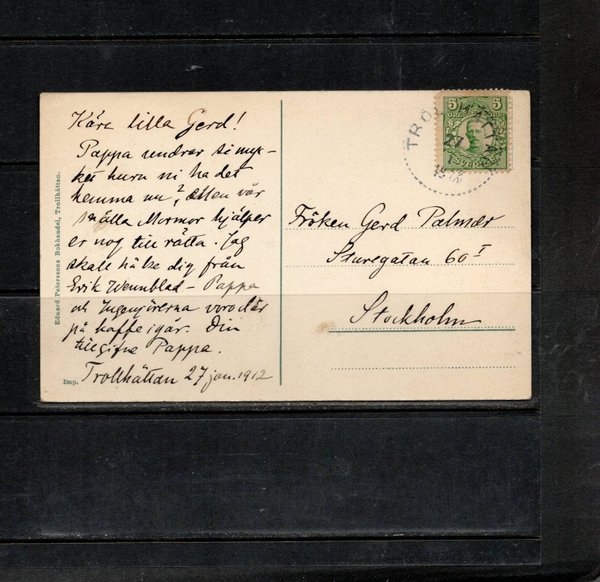 Kära lilla Gerd!
Pappa undrar så myc-
ket huru ni ha det
hemma nu? Men vår
snälla Mormor hjälper
er nog till rätta. Jag
skale hälsa dig från
Erik Wennblad – Pappa
och Ingenjörerna voro där
på kaffe igår. Din
tillgifne Pappa.
Trollhättan 27 jan. 1912
Eduard Peterssons Bokhandel, Trollhättan.
Imp.
5 5
TROLLHÄTTAN
27
1
1912
Fröken Gerd Palmær
Sturegatan 60 I
Stockholm